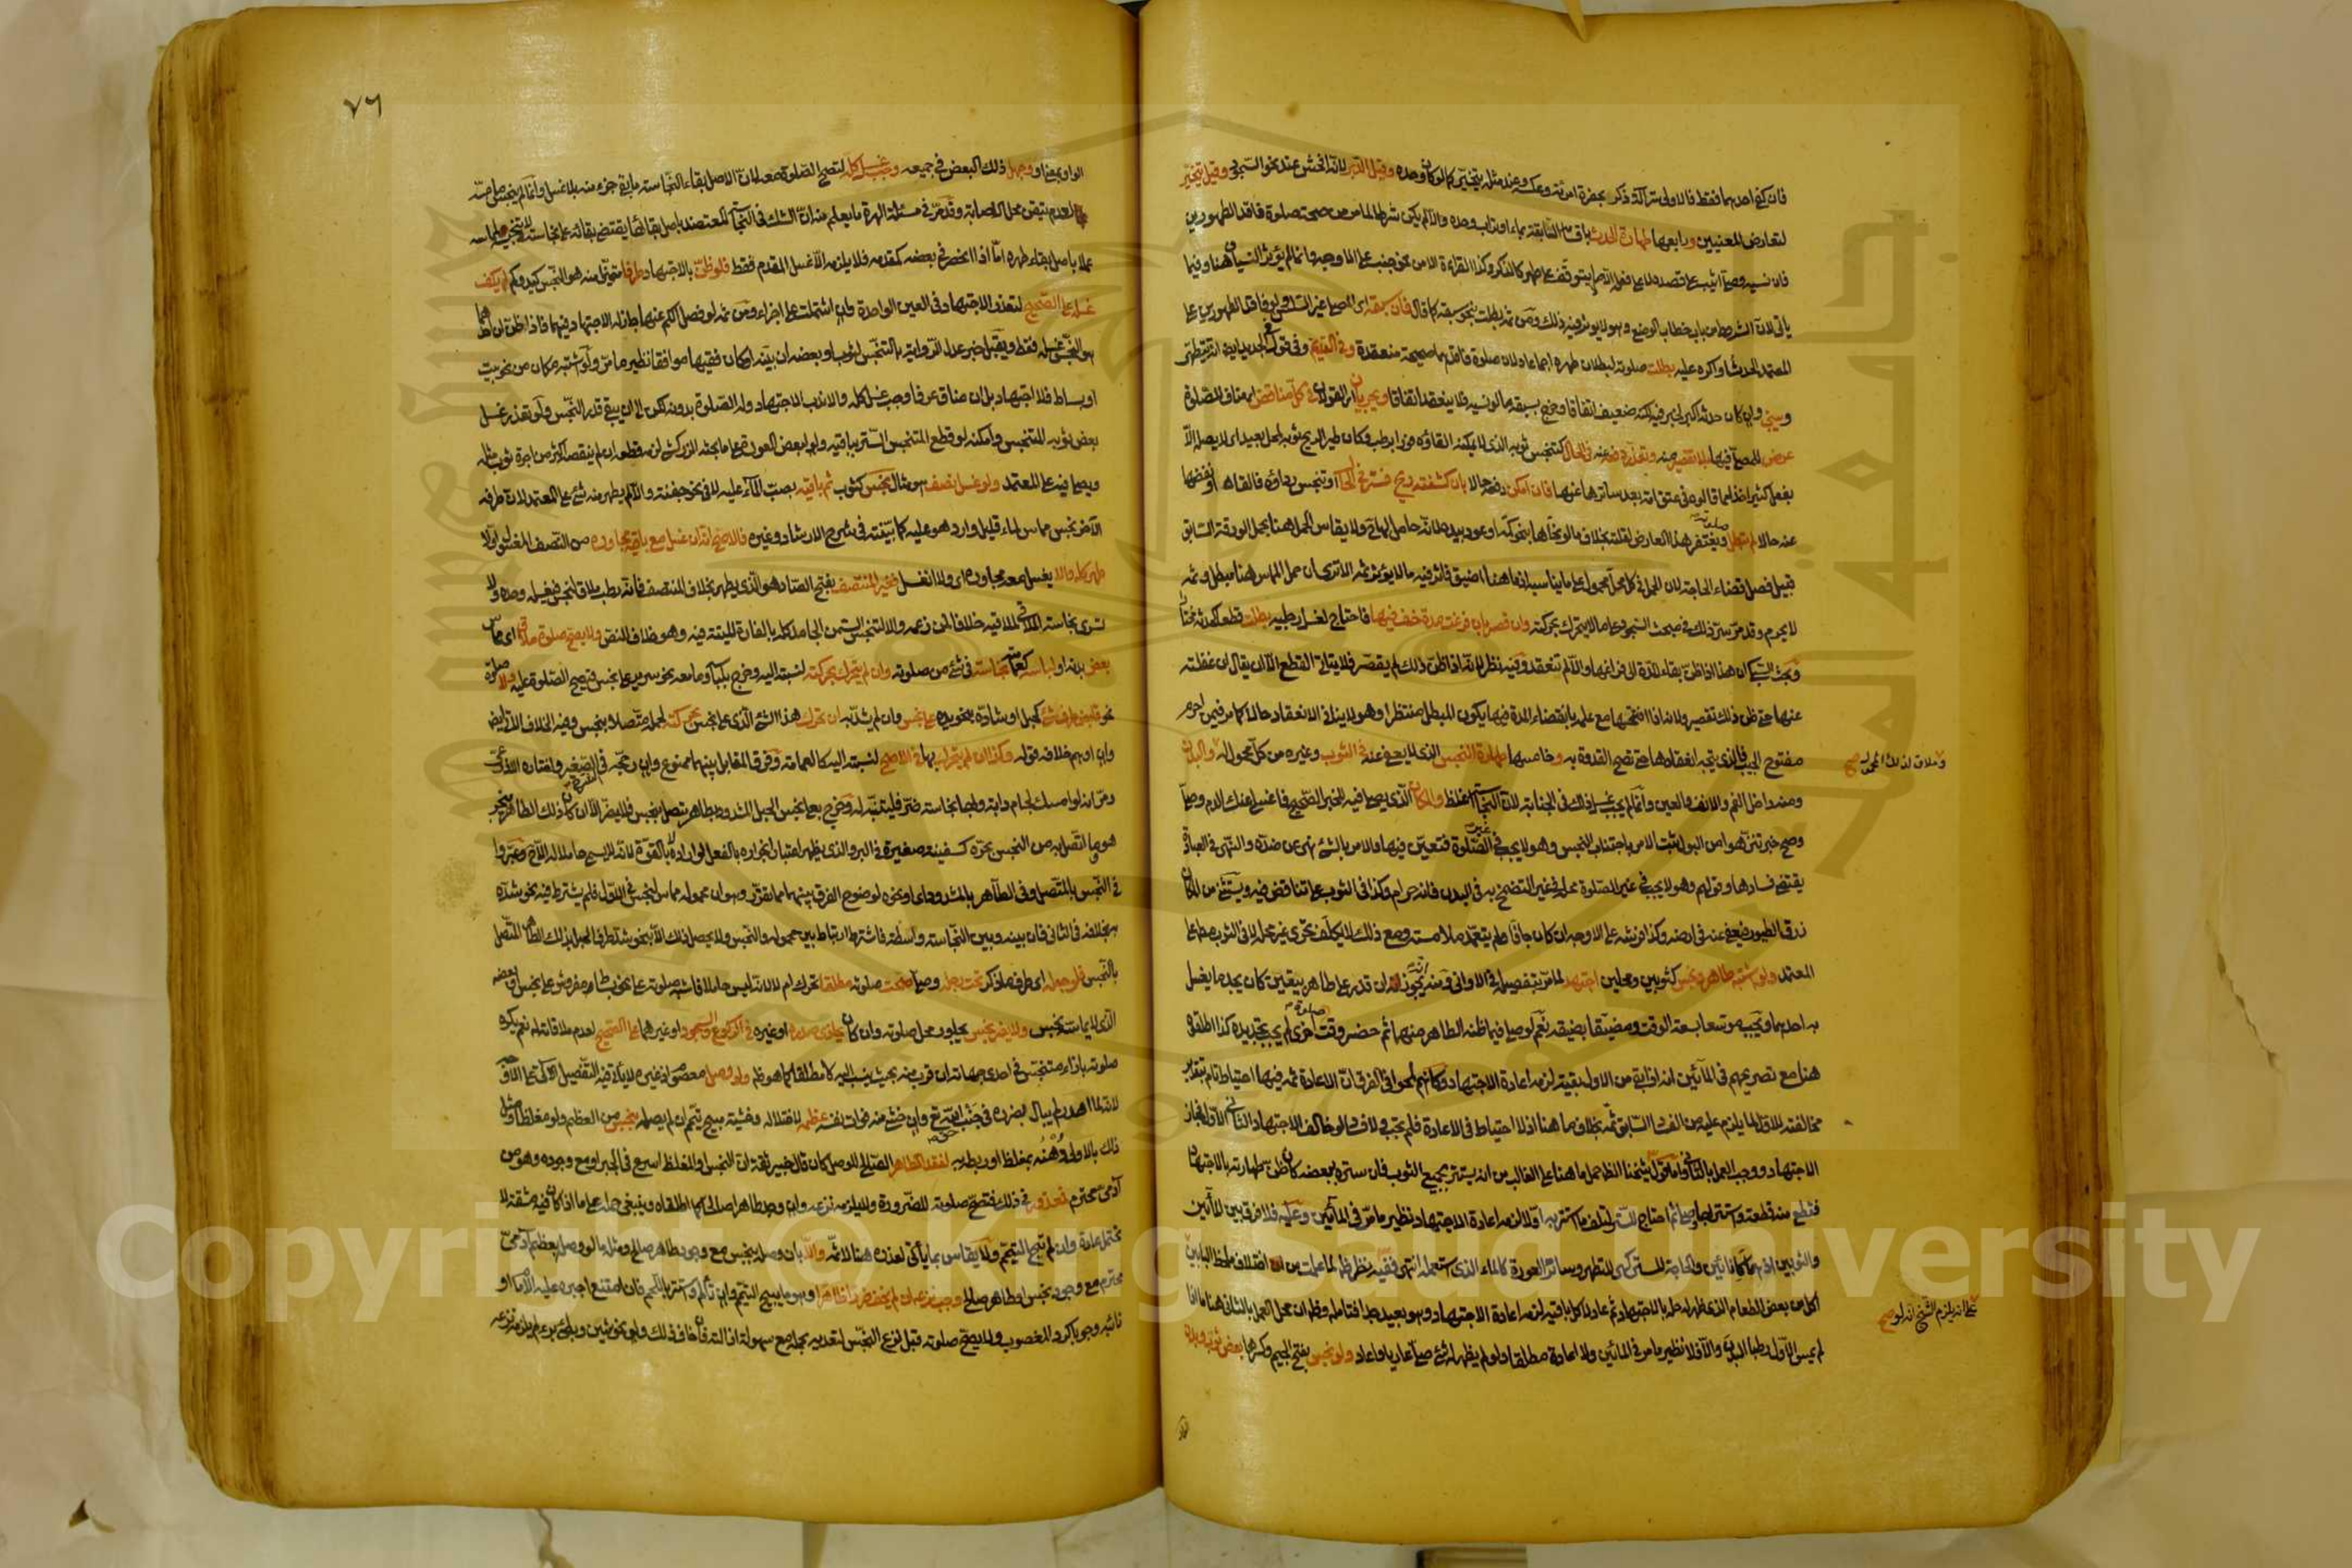 فان كفى احدهما فقط فالاولى ستر آلة ذكر بحضرة امرأة وعكسه وعند مثله يتخير كما لو كان وحده وقيل الدبر لانه افحش عند نحو السجود وقيل يتخير
لتعارض المعنيين ورابعها طهارة الحدث باقسامه السابقة بماء او تراب وحده والا لم يكن شرطا لما مر من صحة صلاة فاقد الطهورين
فان نسيه وصلى اثيب على قصده لا على فعله الا ما لا يتوقف على طهر كالذكر وكذا القراءة الا من نحو جنب على الاوجه وانما لم يؤثر النسيان هنا وفيما
ياتي لان الشرط من باب خطاب الوضع وهو لا يؤثر فيه ذلك ومن ثم بطلت بنحو سبقه كما قال فان سبقه اى المصلى غير السلس ولو فاقد الطهورين على
المعتمد الحدث او اكره عليه بطلت صلوته لبطلان طهره اجماعا ولان صلوة فاقدهما صحيحة منعقدة وفى القديم وفى قول فى الجديد ايضا انه يتطهر
ويبنى وان كان حدثه اكبر لخبر فيه لكنه ضعيف اتفاقا وخرج بسبقه ما لو نسيه فلا ينعقد اتفاقا ويجريان اى القولان فى كل مناقض اى مناف للصلوة
عرض للمصلى فيها بلا تقصير منه وتعذر دفعه عنه فى الحال كتنجس ثوبه الذى لا يمكنه القاؤه فورا برطب وكان طير الريح ثوبه لمحل بعيد اى لا يصله الا
بفعل كثير اخذا مما قالوه فى عتق امة بعد ساترها عنها فان امكن دفعه حالا بان كشفته ريح فستر فى الحال او تنجس رداؤه فالقاه او نفضها
عنه حالا لم تبطل صلوته ويغتفر هذا العارض لقلته بخلاف ما لو نحاها بنحو كمه او عود بيده لانه حامل لها ولا يقاس الحمل هنا بحمل الورقة السابق
قبيل فصل قضاء الحاجة لان الحمل فى كل محل محمول على ما يناسبه اذ ما هنا اضيق فاثر فيه ما لا يؤثر ثم الا ترى ان حمل المماس هنا مبطل وثم
لا يحرم وقد مر سر ذلك فى مبحث السجود على ما لا يتحرك بحركته وان قصر بان فرغت مدة خف فيها فاحتاج لغسل رجليه بطلت قطعا كحدثه مختارا
وبحث السبكى ان هذا اذا ظن بقاء المدة الى فراغها والا لم تنعقد وفيه نظر لانه اذا ظن ذلك لم يقصر فلا يتأتى القطع الا ان يقال ان غفلته
عنها حتى ظن ذلك تقصير ولانه اذا افتتحها مع علمه بانقضاء المدة فيها يكون المبطل منتظرا وهو لا ينافى الانعقاد حالا كما مر فيمن احرم
مفتوح الجيب فالذى يتجه انعقادها حتى تصح القدوة به وخامسها طهارة النجس الذى لا يعفى عنه فى الثوب وغيره من كل محمول له والبدن
وملاق لذلك المحمول صح
ومنه داخل الفم والانف والعين وانما لم يجب غسل ذلك فى الجنابة لان النجاسة اغلظ والمكان الذى يصلى فيه للخبر الصحيح فاغسلى عنك الدم وصلى
وصح خبر تنزهوا من البول فثبت الامر باجتناب النجس وهو لا يجب فى غير الصلوة فتعين فيها والامر بالشئ نهى عن ضده والنهى فى العبادة
يقتضى فسادها وقولهم وهو لا يجب فى غير الصلوة محله فى غير التضمخ به فى البدن فانه حرام وكذا فى الثوب على تناقض فيه ويستثنى من المكان
ذرق الطيور فيعفى عنه فى ارضه وكذا فرشه على الاوجه ان كان جافا ولم يتعمد ملامسته ومع ذلك لا يكلف تحرى غير محله لا فى الثوب مطلقا على
المعتمد ولو اشتبه طاهر ونجس كثوبين ومحلين اجتهد لما مر بتفصيله فى الاوانى ومنه انه يجوز ان قدر على طاهر بيقين كان يجد ما يغسل
به احدهما ويجب موسعا بسعة الوقت ومضيقا بضيقه نعم لو صلى فيما ظنه الطاهر منهما ثم حضر وقت صلوة اخرى لم يجب تجديده كذا اطلقوه
هنا مع تصريحهم فى المائين انه اذا بقى من الاول بقية لزمه اعادة الاجتهاد وكانهم لمحوا فى الفرق ان الاعادة ثم فيها احتياط تام بتقدير
مخالفته للاول لما يلزم عليه من الفساد السابق ثم بخلاف ما هنا اذ لا احتياط فى الاعادة فلم تجب ولا فساد لو خالف الاجتهاد الثانى الاول فجاز
الاجتهاد ووجب العمل بالثانى واما قول شيخنا الظاهر حمل ما هنا على الغالب من انه يستتر بجميع الثوب فان ستره بعضه كان ظن طهارته بالاجتهاد
فقطع منه قطعة واستتر بها وصلى ثم احتاج للستر لتلف ما استتر به اولا لزمه اعادة الاجتهاد نظير ما مر فى المائين وعليه فلا فرق بين المائين
والثوبين اذ هما كانائين والحاجة للستر كهى للتطهر وساتر العورة كالماء الذى استعمله انتهى ففيه نظر ظاهر لما علمت من اختلاف ملحظ البابين
اكل من بعض الطعام الذى ظهر له حله بالاجتهاد ثم عاد لاكل باقيه لزمه اعادة الاجتهاد وهو بعيد جدا فتامله وظاهر ان محل العمل بالثانى هنا ما اذا
على انه يلزم الشيخ انه لو صح
لم يمس الاول رطبا البدن والا فلا نظير ما مر فى المائين ولا اعادة مطلقا ولو لم يظهر له شئ صلى عاريا واعاد ولو نجس بفتح الجيم وكسرها بعض ثوب وبدن
٧٦
الواو بمعنى او وجهل ذلك البعض فى جميعه وجب غسل كله لتصح الصلوة معه لان الاصل بقاء النجاسة ما بقى جزء منه بلا غسل وانما لم ينجس ما مسه
لعدم تيقن محل الاصابة وقد مر فى مسئلة الهرة ما يعلم منه ان الشك فى النجاسة المعتضد باصل بقائها يقتضى بقائه على نجاسته لا تنجس مماسه
عملا باصل بقاء طهره اما اذا انحصر فى بعضه كمقدمه فلا يلزمه الا غسل المقدم فقط فلو ظن بالاجتهاد طرفا متميزا منه هو النجس كيد وكم لم يكف
غسله على الصحيح لتعذر الاجتهاد فى العين الواحدة وان اشتملت على اجزاء ومن ثم لو فصل الكم عنها جاز له الاجتهاد فيهما فاذا ظن ان احدهما
هو النجس غسله فقط ويقبل خبر عدل الرواية بالتنجس لثوب او بعضه ان بينه او كان فقيها موافقا نظير ما مر ولو اشتبه مكان من نحو بيت
او بساط فلا اجتهاد بل ان ضاق عرفا وجب غسل كله والا ندب الاجتهاد وله الصلوة بدونه لكن الى ان يبقى قدر النجس ولو تعذر غسل
بعض ثوبه المتنجس وامكنه لو قطع المتنجس الستر بباقيه ولو لبعض العورة على ما بحثه الزركشى لزمه قطعه ان لم ينقصه اكثر من اجرة ثوب مثله
ويصلى فيه على المعتمد ولو غسل نصف هو مثال نجس كثوب ثم باقيه بصب الماء عليه لا فى نحو جفنة والا لم يطهر منه شئ على المعتمد لان طرفه
الآخر نجس مماس لماء قليل وارد هو عليه كما بينته فى شرح الارشاد وغيره فالاصح انه ان غسل مع باقيه مجاوره من النصف المغسول اولا
طهر كله والا يغسل معه مجاوره اى ولا انغسل فغير المنتصف بفتح الصاد هو الذى يطهر بخلاف المنتصف فانه رطب ملاق لنجس فيغسله وحده ولا
تسرى نجاسة الملاقى لملاقيه خلافا لمن زعمه والا لتنجس السمن الجامد كله بالفارة الميتة فيه وهو خلاف النص ولا تصح صلوة ملاق اى مماس
بعض بدنه او لباسه كعمامته نجاسة فى شئ من صلوته وان لم يتحرك بحركته لنسبته اليه وخرج بلباسه وما معه نحو سرير على نجس فتصح الصلوة عليه ولا صلوة
نحو قابض طرف شئ كحبل او شاده بنحو يده على نجس وان لم يشد به ان تحرك هذا الشئ الذى على نجس بحركته لحمله متصلا بنجس وفيه الخلاف الآتى ايضا
وان اوهم خلافه قوله وكذا ان لم يتحرك بها فى الاصح لنسبته اليه كالعمامة وفرق المقابل بينهما ممنوع وان رجحه فى الصغير واختاره الاذرعى
ومر انه لو امسك لجام دابة وبها نجاسة ضر فليتنبه له وخرج بعلى نجس الحبل المشدود بطاهر متصل بنجس فلا يضر الا ان كان ذلك الطاهر ينجر
هو وما اتصل به من النجس بجره كسفينة صغيرة فى البر والذى يظهر اعتبار انجراره بالفعل لو اراده لا بالقوة لانه لا يسمى حاملا له الآخ وعبروا
فى النجس بالمتصل وفى الطاهر بالمشدود اى او نحوه لوضوح الفرق بينهما مما تقرر وهو ان محموله مماس لنجس فى الاول فلم يشترط فيه نحو شده
به بخلافه فى الثانى فان بينه وبين النجاسة واسطة فاشترط ارتباط بين محموله والنجس ولا يحصل ذلك الا بنحو شد طرف الحبل بذلك الطاهر المتصل
بالنجس فلو جعله اى طرف ما ذكر تحت رجله وصلى صحت صلوته مطلقا تحرك ام لا لانه ليس حاملا فاشبه صلوته على نحو بساط مفروش على نجس او بعضه
الذى لا يماسه نجس ولا يضر نجس يجاور محل صلوته وان كان يحاذى صدره او غيره فى الركوع والسجود او غيرهما على الصحيح لعدم ملاقاته له نعم يكره
صلوته بازاء متنجس فى احدى جهاته ان قرب منه بحيث ينسب اليه لا مطلقا كما هو ظاهر ولو وصل معصوم اذ غيره لا ياتى فيه التفصيل الآتى على الاوجه
لانه لما اهدر لم يبال بضرره فى جنب حق الله تع وان خشى منه فوات نفسه عظمه لاختلاله وخشية مبيح تيمم ان لم يصله بنجس من العظم ولو مغلظا ومثل
ذلك بالاولى دهنه بمغلظ او ربطه به لفقد الطاهر الصالح للوصل كان قال خبير ثقة ان النجس او المغلظ اسرع فى الجبر او مع وجوده وهو من
آدمى محترم فمعذور فى ذلك فتصح صلوته للضرورة ولا يلزمه نزعه وان وجد طاهرا صالحا كما اطلقاه وينبغى حمله على ما اذا كان فيه مشقة لا
تحتمل عادة وان لم تبح التيمم ولا يقاس بما يأتى لعذره هنا لا ثم والا بان وصله بنجس مع وجود طاهر صالح ومثله ما لو وصله بعظم آدمى
محترم مع وجود نجس او طاهر صالح وجب نزعه ان لم يخف ضررا ظاهرا وهو ما يبيح التيمم وان تألم واستتر باللحم فان امتنع اجبره عليه الامام او
نائبه وجوبا كرد المغصوب ولا تصح صلوته قبل نزع النجس لتعديه بحمله مع سهولة ازالته فان خاف ذلك ولو نحو شين وبطئ برء لم يلزمه نزعه
Copyright © King Saud University